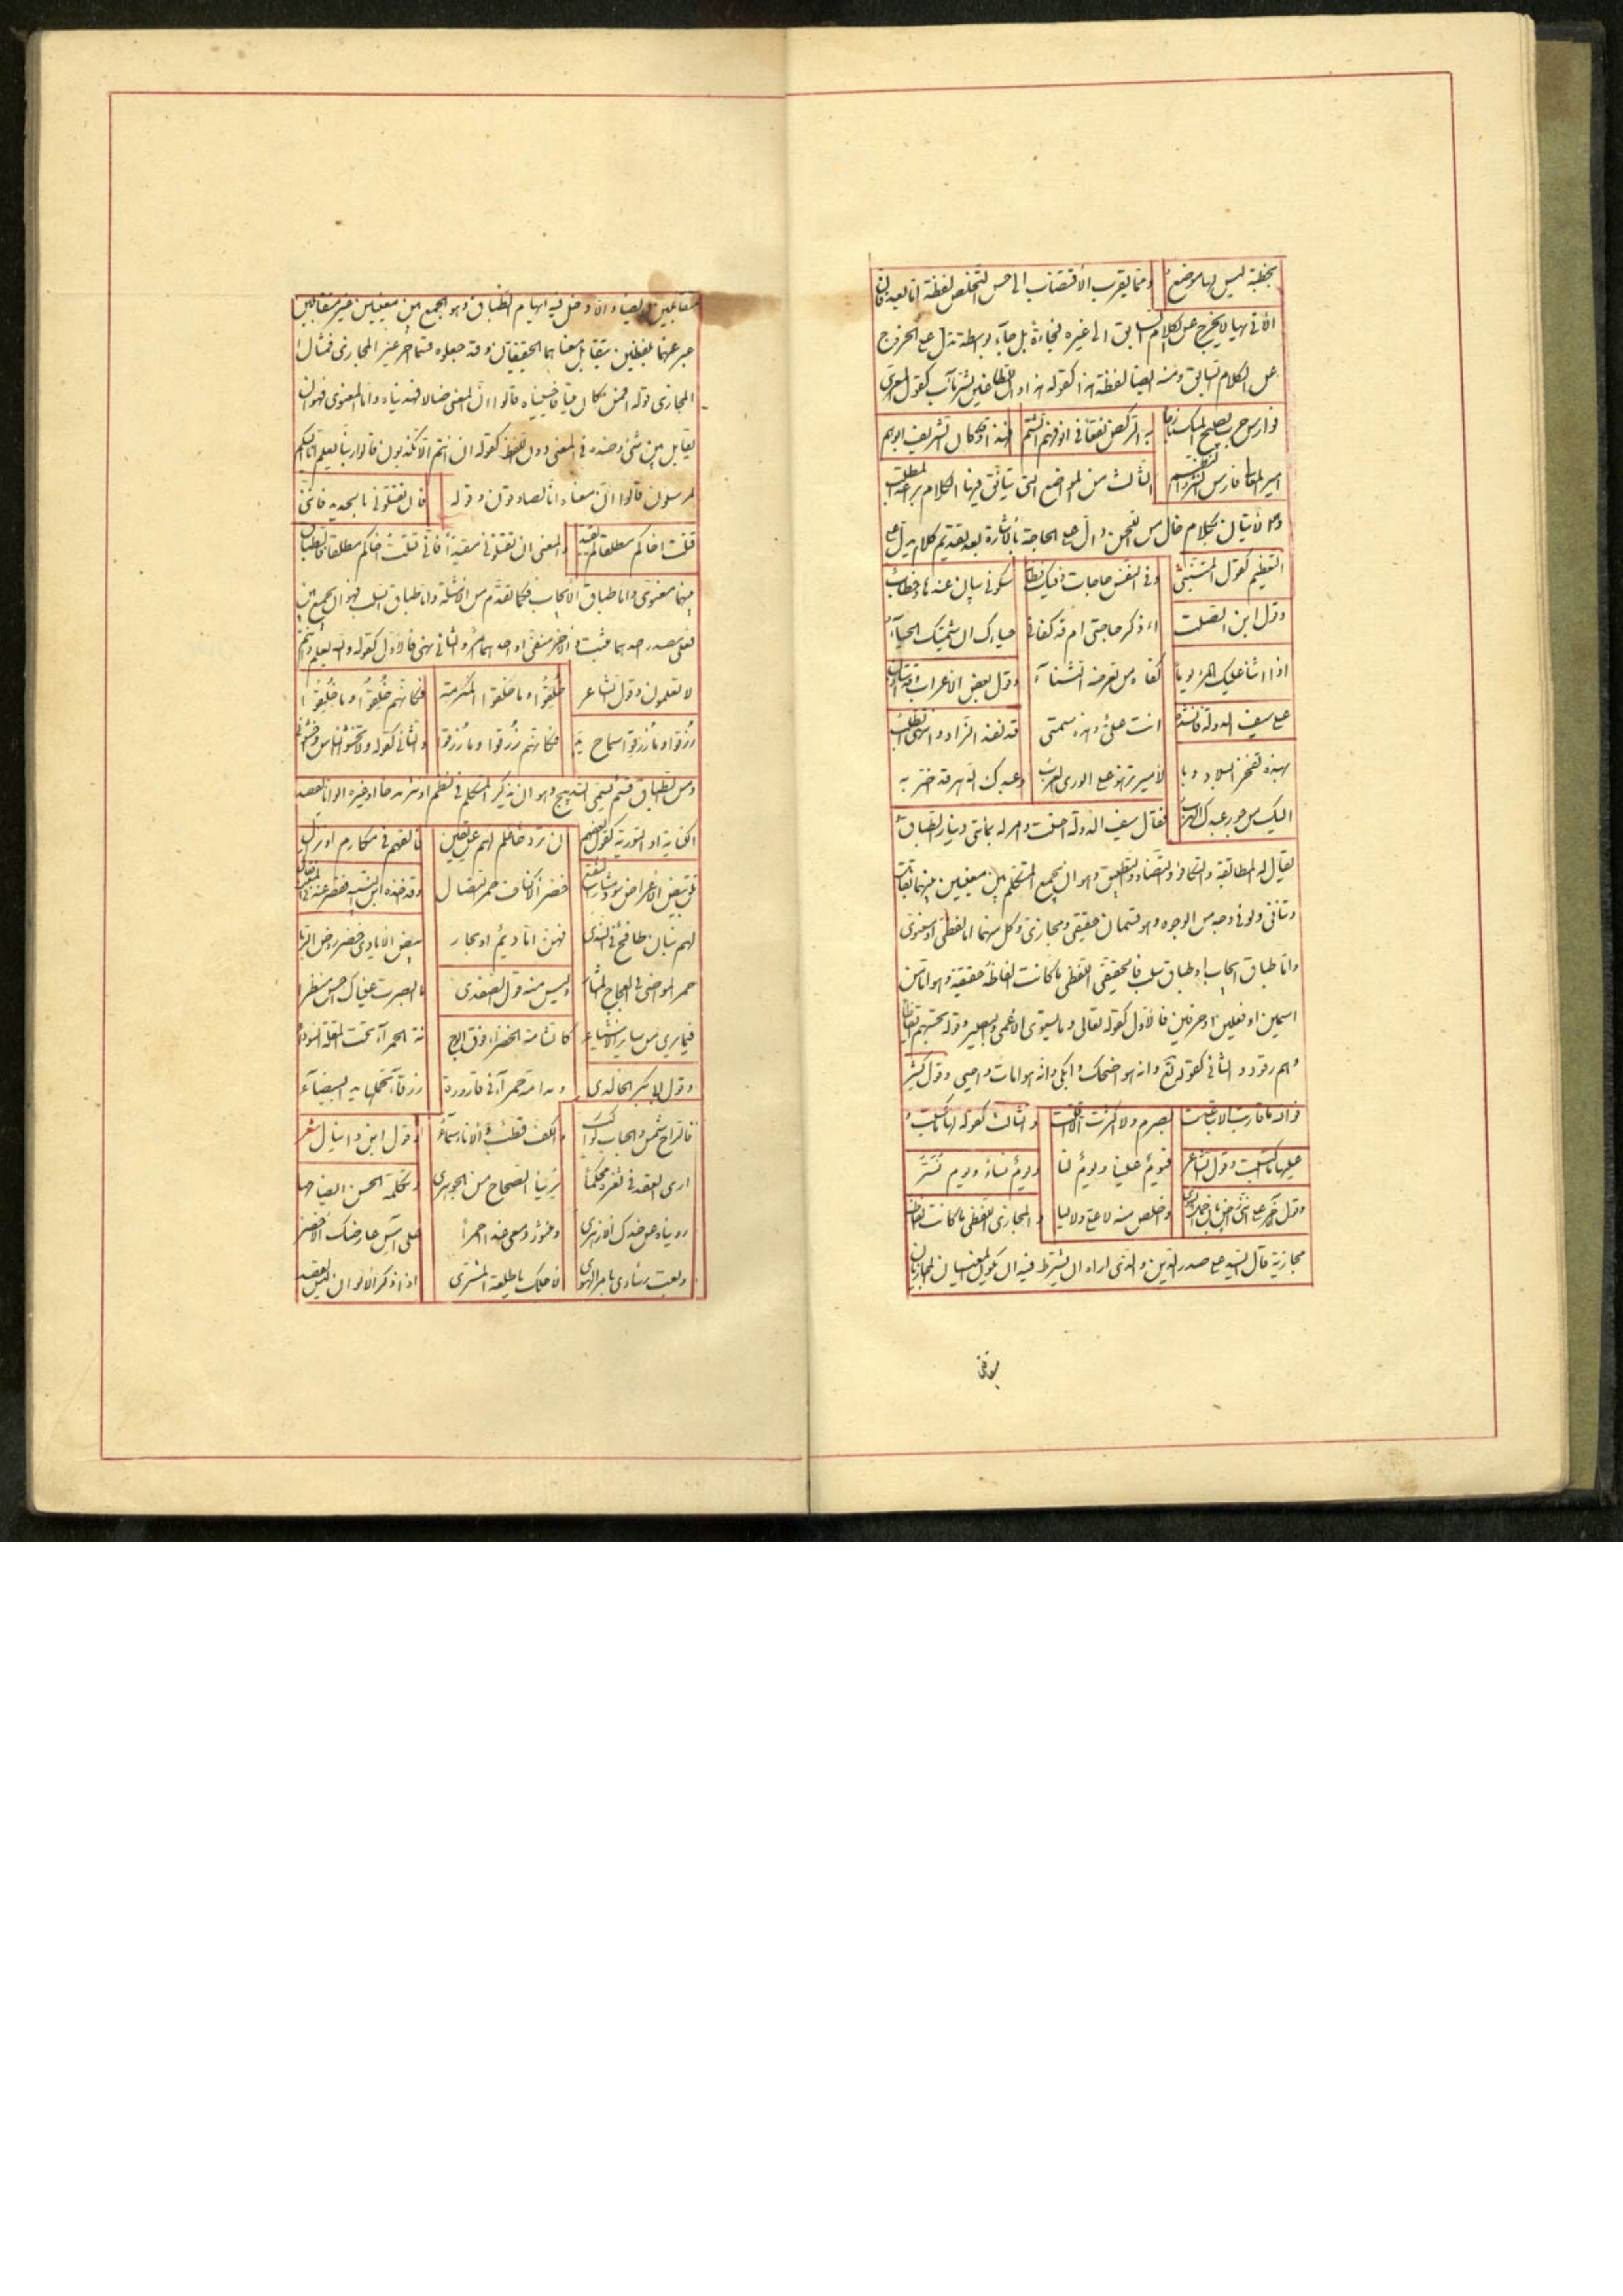 بخطبة ليس لها موضع ومما يقرب الاقتضاب الى حسن التخلص لفظة اما بعد فان
الآتى بها لا يخرج عن الكلام السابق الى غيره فجاءة بل جآء بواسطة تدل على الخروج
عن الكلام السابق ومنه ايضا لفظة هذا كقوله هذا وان للطاغين لشر مآب كقول المعرى
فوارس حرب يصبح المسك به الركض نقعا فى انوفهم الشم فهذا وقد كان الشريف ابوهم
امير المعانى فارس النثر والنظم الثالث من المواضع التى يتأنق فيها الكلام براعة المطلب
وهو الاتيان بكلام خال من دال على الحاجة بالاشارة بعد تقديم كلام يدل على
التعظيم كقول المتنبى وفى النفس حاجات وفيك فطانة سكوتى بيان عندها وخطاب
وقول ابن الصلت أأذكر حاجتى ام قد كفانى حياؤك ان شيمتك الحيآء
اذا اثنى عليك المرء يوما كفاه من تعرضه الثنآء وقول بعض الاعراب
على سيف الدولة فانشده انت على وهذه قد نفد الزاد وانتهى الطلب
بهذه تفخر البلاد وبا لأمير تزهو على الورى العرب وعبدك الدهر قد اضر به
اليك من جور عبدك الهرب فقال سيف الدولة احسنت وامر له بمأتى دينار الطباق
يقال له المطابقة والتكافؤ والتضاد والتطبيق وهو ان يجمع المتكلم بين معنيين بينهما تقابل
وتنافى ولو فى وجه من الوجوه وهو قسمان حقيقى ومجازى وكل منهما اما لفظى او معنوى
واما طباق ايجاب او طباق سلب فالحقيقى اللفظى ما كانت الفاظه حقيقة وهو اما من
اسمين او فعلين او حرفين فالاول كقوله تعالى وما يستوى الاعمى والبصير وقوله تحسبهم ايقاظا
وهم رقود والثانى كقوله تع وانه هو اضحك وابكى وانه هو امات واحيى وقول كثير
فوالله ما قاربت الا تباعدت بصرم ولا اكثرت الا اقلت والثالث كقوله لها ما كسبت و
عليها ما اكتسبت وقول الشاعر فيوم علينا ويوم لنا ويوم نساء ويوم نسر
وقول آخر على اننى راض بان احمل الهوى واخلص منه لا على ولا ليا والمجازى اللفظى ما كانت الفاظه
مجازية قال السيد على صدر الدين والذى اراه ان يشترط فيه ان يكون المعنيان المجازيان
متقابلين ايضا والا دخل فيه ايهام الطباق وهو الجمع بين معنيين غير متقابلين
عبر عنهما بلفظين يتقابل معناهما الحقيقيان وقد جعلوه قسما آخر غير المجازى فمثال
المجازى قوله افمن كان ميتا فاحييناه قالوا ان المعنى ضالا فهديناه واما المعنوى فهو ان
يقابل بين شئ وضده فى المعنى دون اللفظ كقوله ان انتم الا تكذبون قالوا ربنا يعلم انا اليكم
لمرسلون قالوا ان معناه انا لصادقون وقوله فان تقتلونى فاننى
قتلت اخاكم مطلقا لم يقيد والمعنى ان تقتلونى مقيدا فانى قتلت اخاكم مطلقا فالطباق
بينهما معنوى واما طباق الايجاب فكما تقدم من الامثلة واما طباق السلب فهو ان يجمع بين
فعلى مصدر احدهما مثبت والآخر منفى او احدهما امر والثانى نهى فالاول كقوله والله يعلم وانتم
لا تعلمون وقول الشاعر خلقوا وما خلقوا لمكرمة فكأنهم خلقوا وما خلقوا
رزقوا وما رزقوا سماح يد فكأنهم رزقوا وما رزقوا والثانى كقوله ولا تخشوا الناس واخشون
ومن الطباق قسم يسمى التدبيج وهو ان يذكر المتكلم فى نظم او نثر مدحا او غيره الوانا لقصد
الكناية او التورية كقول بعضهم ان ترد علمهم عن يقين فالقهم فى مكارم او نزال
تلق بيض الاعراض سود خضر الاكناف حمر النصال وقد اخذه ابن النبيه فقصر عنه
لهم بنان طافح فهن اما ديم او بحار بيض الايادى خضر روض الربا
حمر المواضى فى العجاج المثار وليس منه قول الصفدى ما ابصرت عيناك احسن منظرا
فيما يرى من سائر الاشيآء كالشامة الخضرآء فوق الوجنة الحمرآء تحت المقلة السودآء
وقول ابى بكر الخالدى ومدامة حمرآء فى قارورة زرقآء تحملها يد البيضآء
فالراح شمس والحباب كواكب والكف قطب والاناء سمآء وقول ابن دانيال
ارى العقد فى ثغره محكما يرينا الصحاح من الجوهرى وتكملة الحسن ايضاحها
رويناه عن خدك الازهرى ومنثور دمعى غدا احمرا على آس عارضك الاخضر
وبعت رشادى بالهوى لاجلك يا طلعة المشترى اذا ذكر الالوان
بموافق